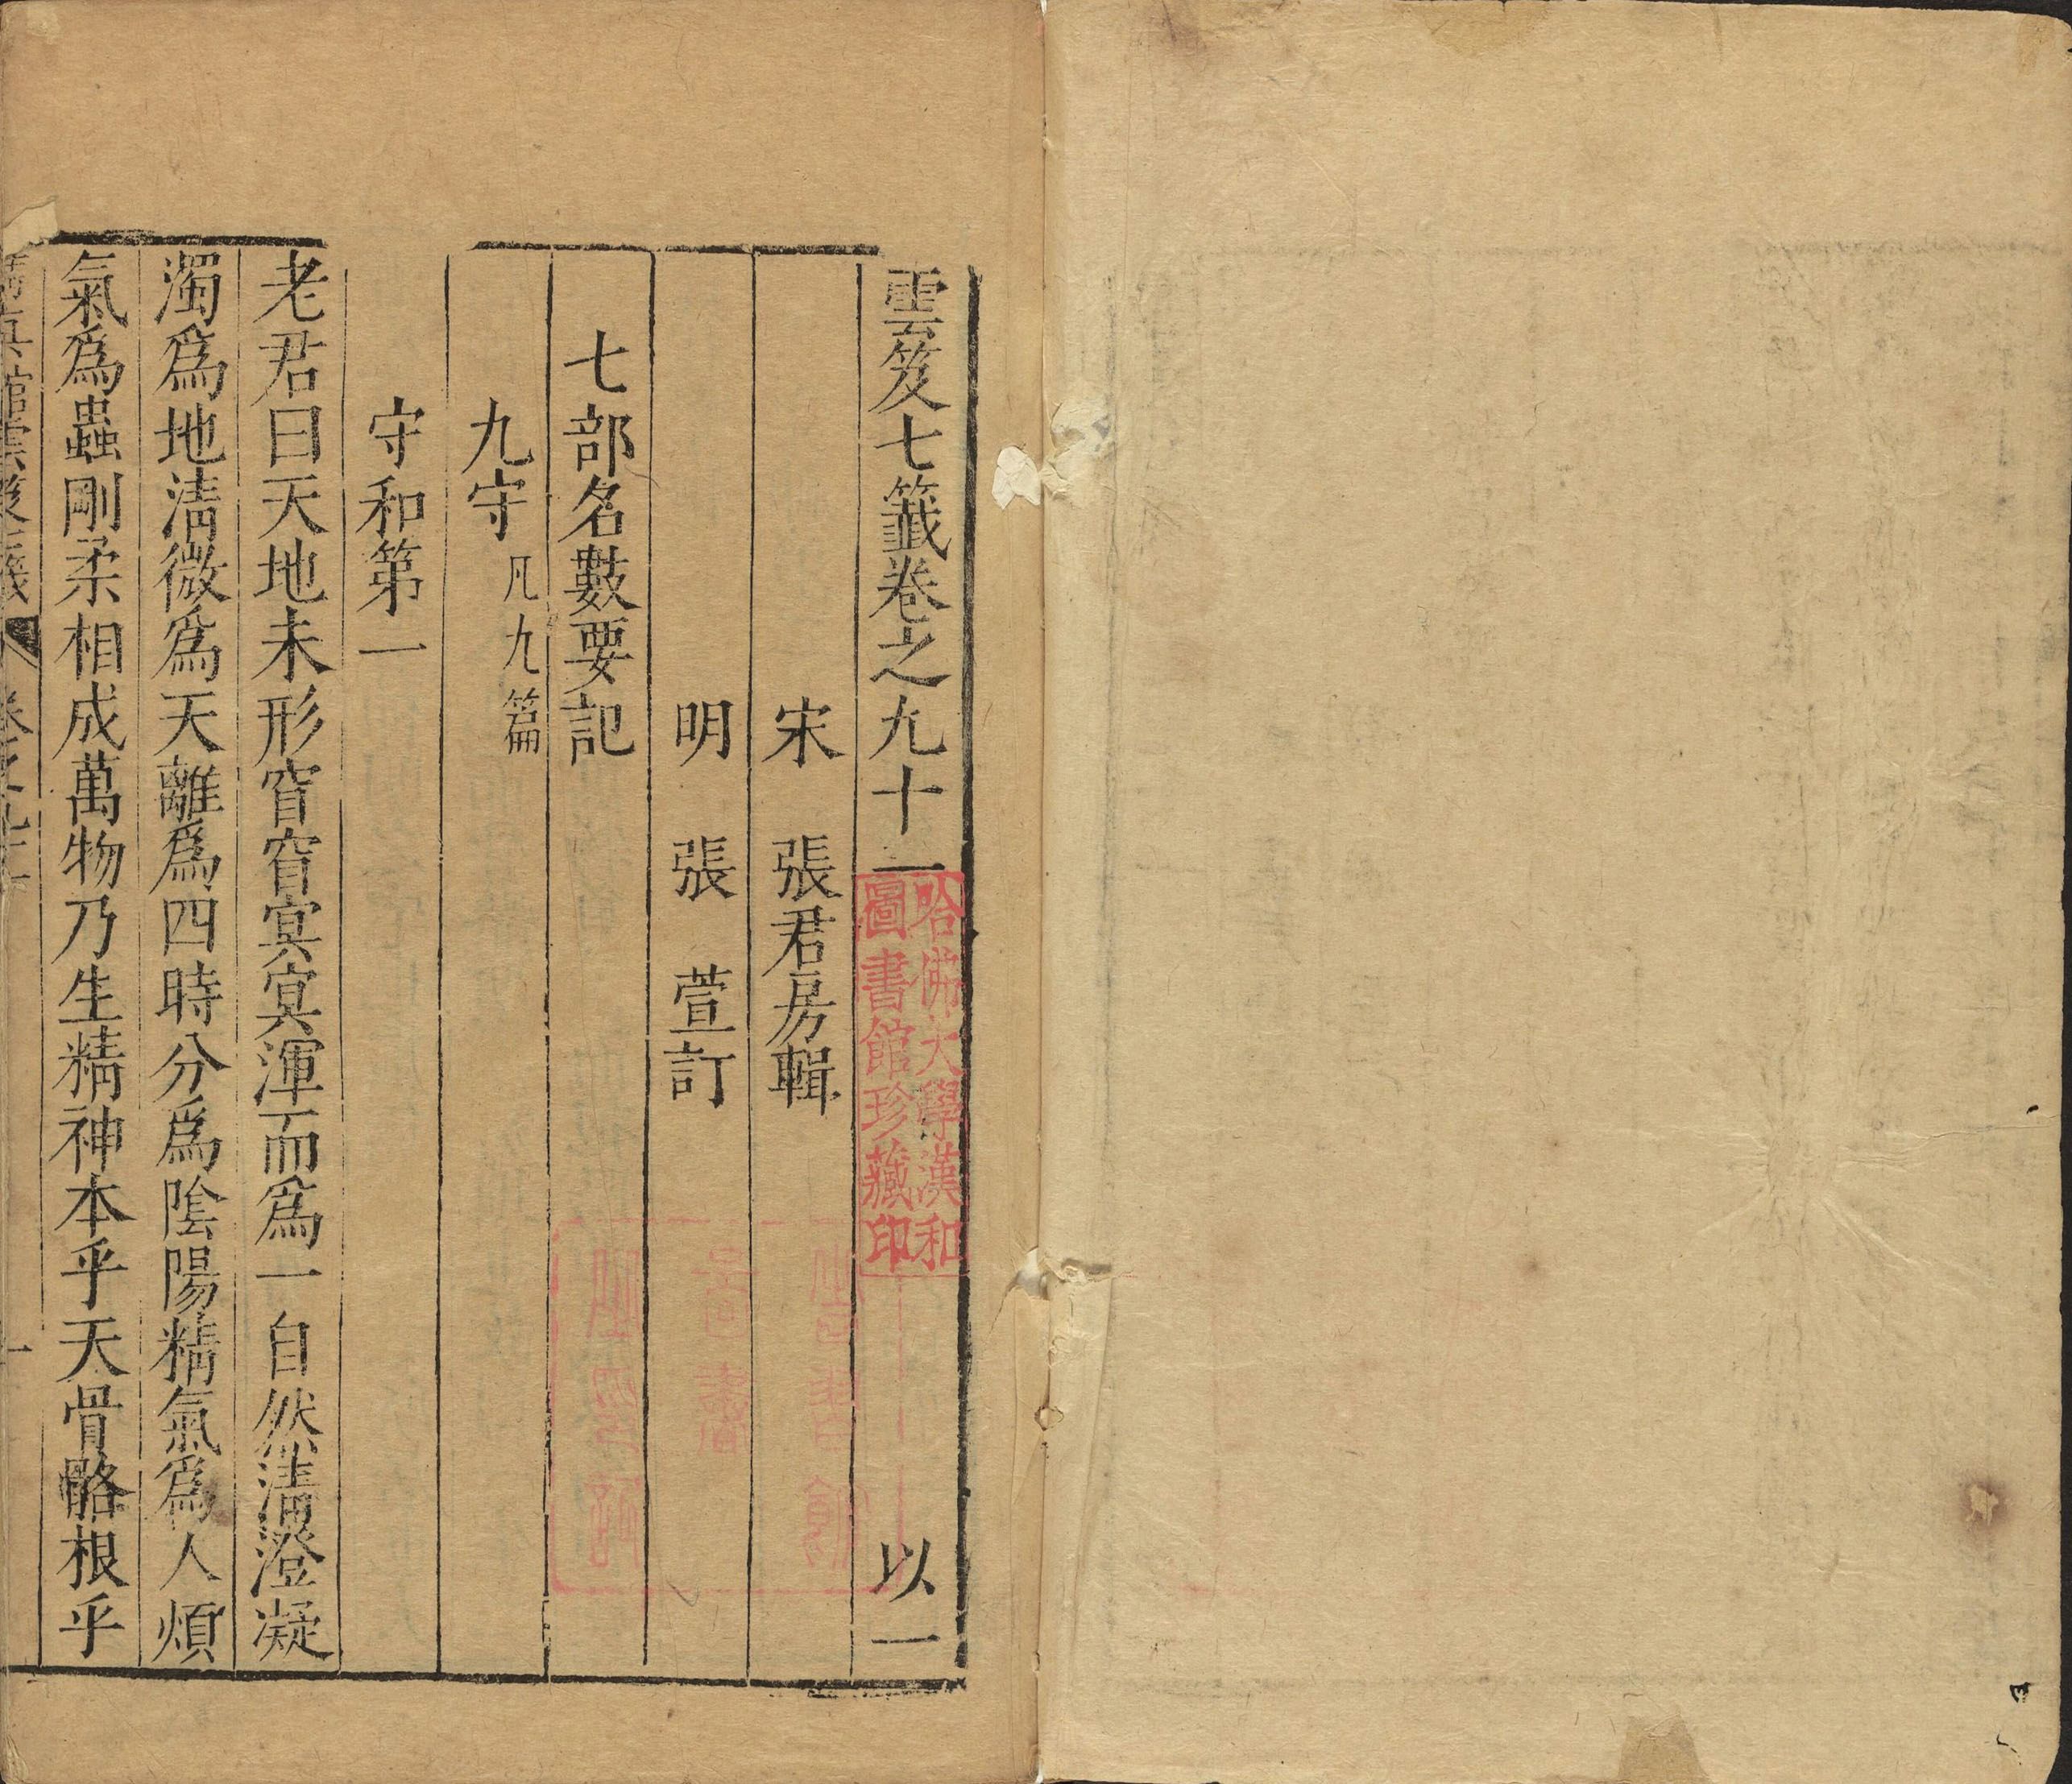 雲笈七籤卷之九十一 以一
宋 張君房輯
明 張 萱訂
七部名數要記
九守 凡九篇
守和第一
老君曰天地未形窅窅冥冥渾而爲一自然清澄凝
濁爲地清微爲天離爲四時分爲陰陽精氣爲人煩
氣爲蟲剛柔相成萬物乃生精神本乎天骨骼根乎
哈佛大學漢和
圖書館珍藏印